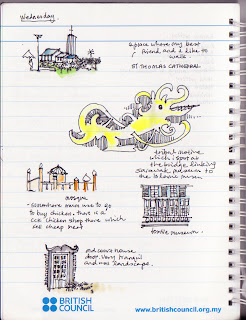 Wednesday
a place where my best
friend and i like to
walk.
ST THOMAS CATHEDRAL
tribal motive
which i spot at
the bridge linking
sarawak museum to
the islamic museum
mosque
- somewhere mum use to go
to buy chicken. there is a
chicken shop there which
sell cheap meat
textile museum.
old court house
door. very tranquil
and nice landscape.
BRITISH
COUNCIL
www.britishcouncil.org.my